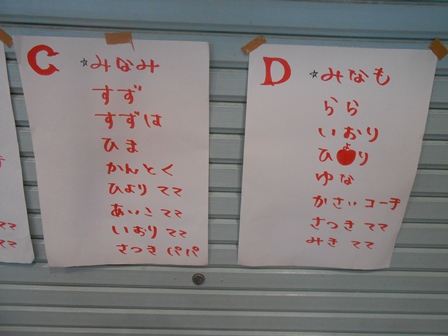 C
☆みなみ
すず
すずは
ひま
かんとく
ひより ママ
あいこ ママ
いおり ママ
さつき パパ
D
☆みなも
らら
いおり
ひより
ゆな
かさい コーチ
さつき ママ
みき ママ
ママ
ママ